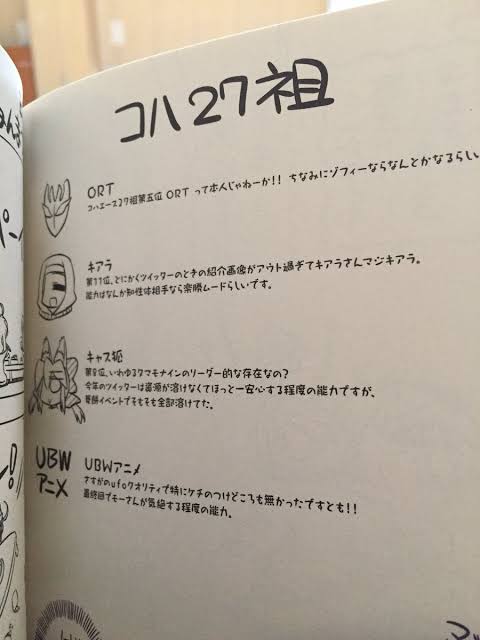 コハ27祖
ORT
コハエース27祖第五位 ORT って本人じゃねーか!! ちなみにゾフィーならなんとかなるらしい
キアラ
第11位、とにかくツイッターのときの紹介画像がアウト過ぎてキアラさんマジキアラ。
能力はなんか知性体相手なら楽勝ムードらしいです。
キャス狐
第8位、いわゆるタマモナインのリーダー的な存在なの?
今年のツイッターは資源が溶けなくてほっと一安心する程度の能力ですが、
菱餅イベントでそもそも全部溶けてた。
UBW
アニメ
UBWアニメ
さすがのufoクオリティで特にケチのつけどころも無かったですとも!!
最終回でモーさんが気絶する程度の能力。